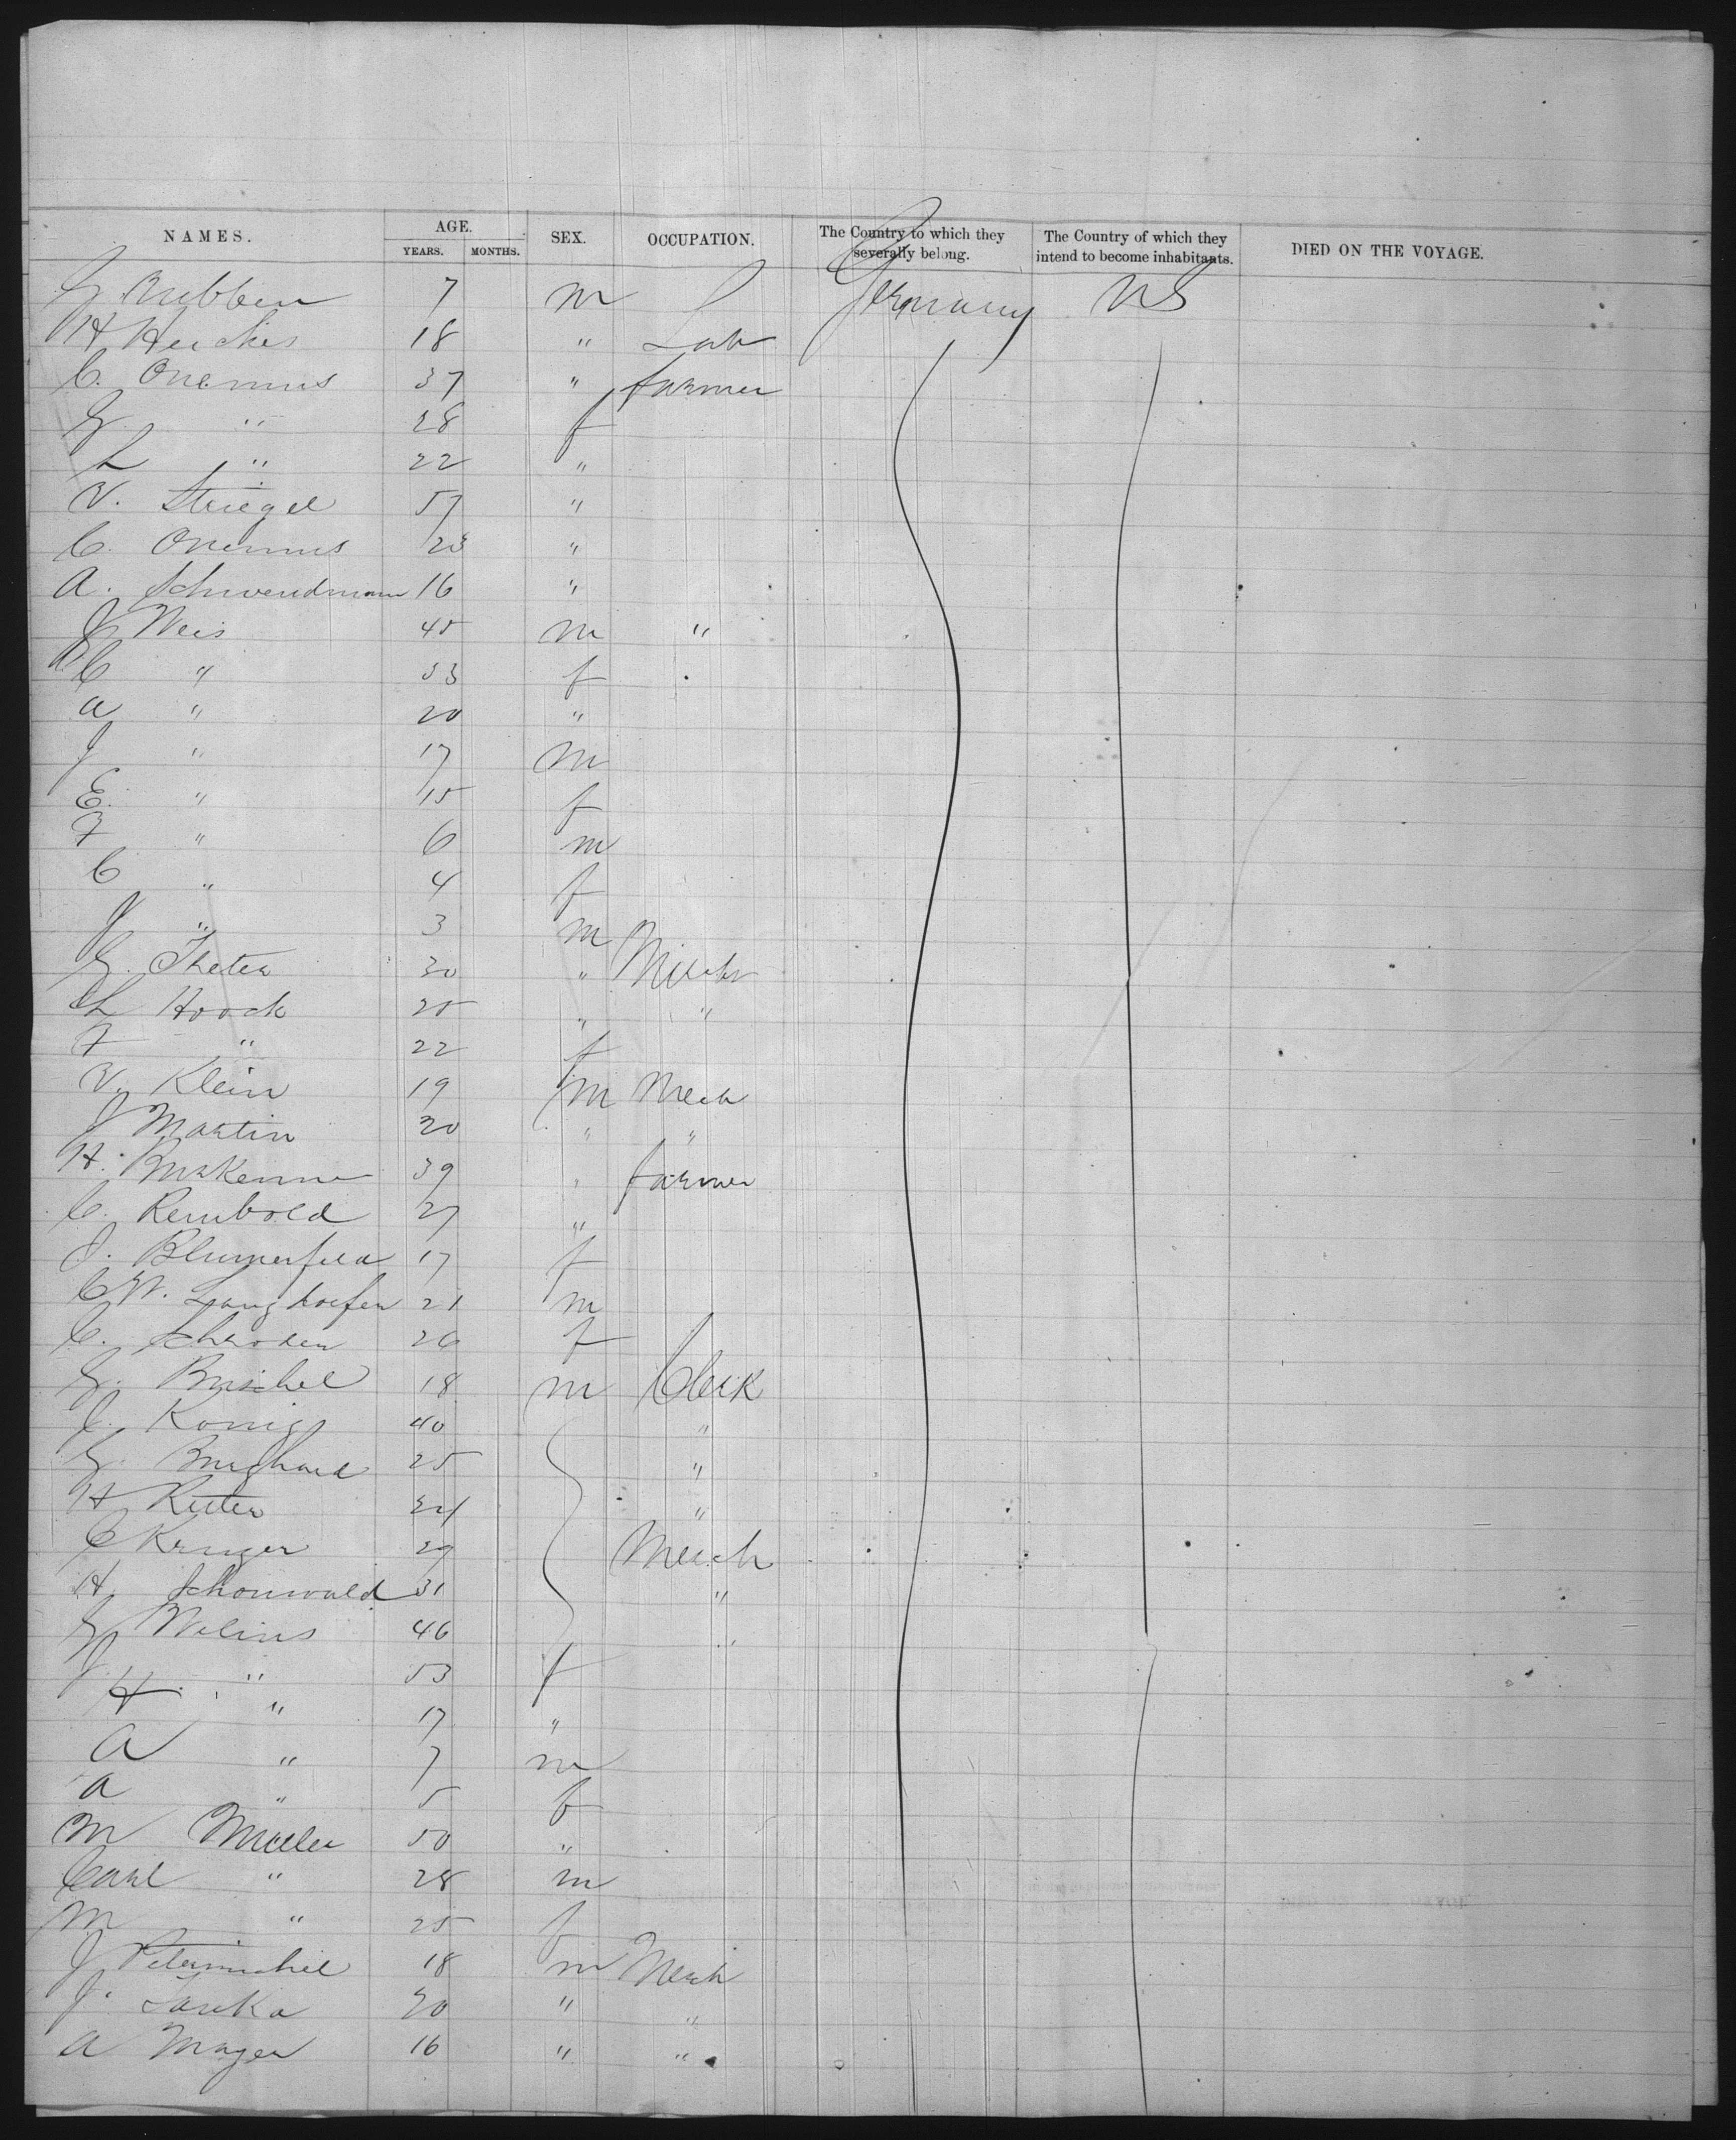 NAMES. AGE. YEARS. MONTHS. SEX. OCCUPATION. The Country to which they severally belong. The Country of which they intend to become inhabitants. DIED ON THE VOYAGE.
7 m Germany US
H 18 " Lab
C. Onemus 37 " farmer
G " 28 f
L " 22 "
V. Striegel 57 "
C. Onemus 23 "
A. Schwendmann 16 "
J Weis 45 m "
C " 33 f
A " 20 "
J " 17 m
E. " 15 f
F " 6 m
C " 4 f
J " 3 m
G. 30 " Merch
L Hoock 25 " "
F " 22 f
V. Klein 19 m Mech
J Martin 20 " "
H. 39 " farmer
C. Rembold 27 "
J. Blumenfeld 17 f
C W. Langhoefer 21 m
C. Schroder 26 f
G. Buschel 18 m Clerk
J. Konig 40 "
G. Burghard 25 "
H Reuter 24 "
C Kruger 29 Merch
H. Schonwald 31 "
G 46 "
J " 53 f
H " 17 "
A " 7 m
A " 5 f
M Muller 50 "
Carl " 28 m
M " 25 f
J 18 m Mech
J. 30 " "
A Mayer 16 " "